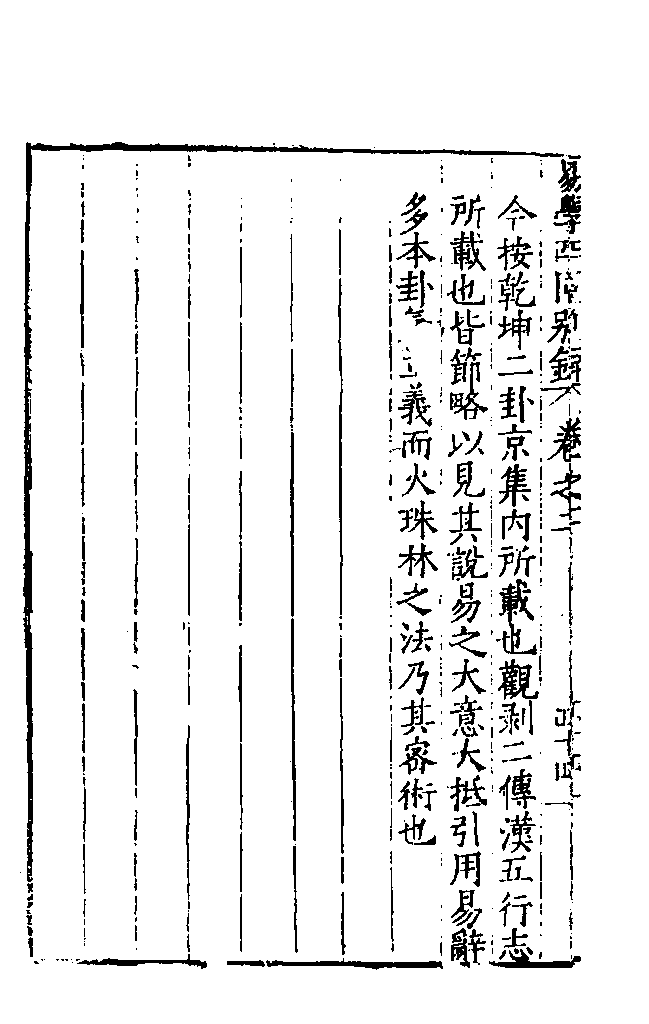 今按乾坤二卦京集內所載也觀剥二傳漢五行志
所載也皆節略以見其說易之大意大抵引用易辭
多本卦氣立義而火珠林之法乃其審術也
易學四同別錄卷之二